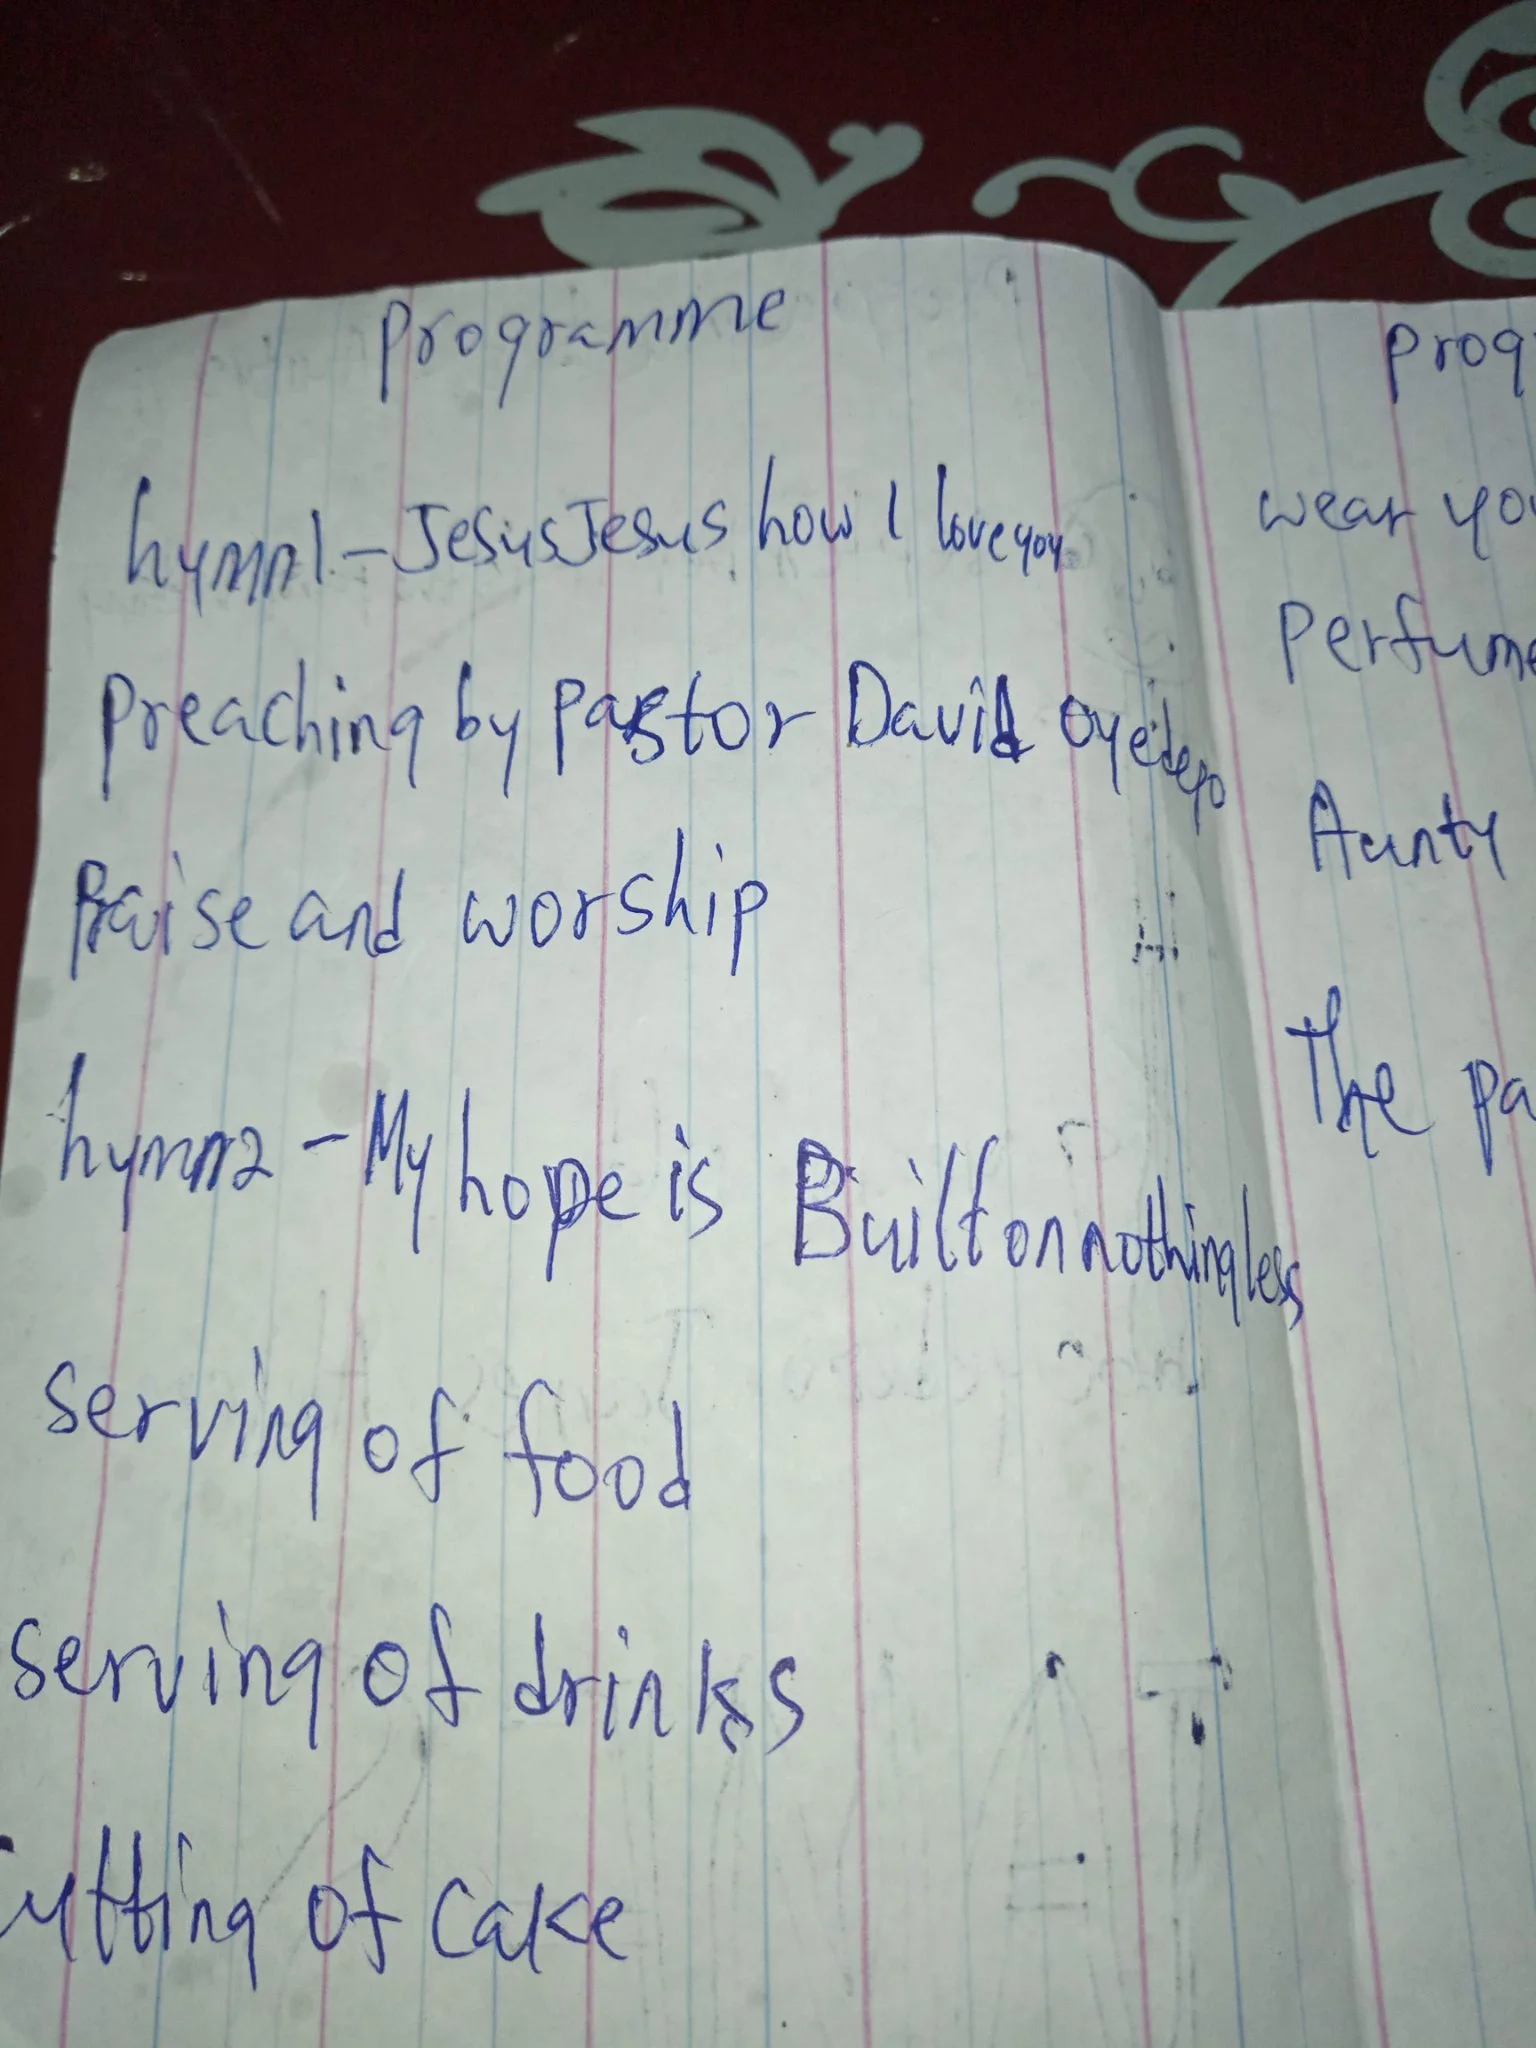 Programme
hymn1 - Jesus Jesus how I love you
preaching by pastor David oyedepo
Praise and worship
hymn2 - My hope is Built on nothing less
serving of food
serving of drinks
cutting of cake
prog
wear yo
Perfume
Aunty
The pa